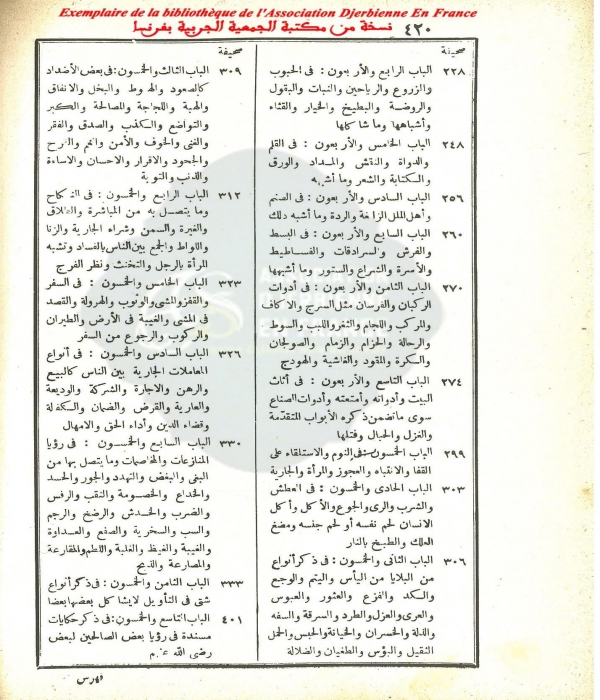 Exemplaire de la bibliothèque de l'Association Djerbienne En France
نسخة من مكتبة الجمعية الجربية بفرنسا
٤٢٠
صحيفة
٢٢٨ الباب الرابع والأربعون : فى الحبوب
والزروع والرياحين والنبات والبقول
والروضة والبطيخ والخيار والقثاء
وأشباهها وما شاكلها
٢٤٨ الباب الخامس والأربعون : فى القلم
والدواة والنقش والمداد والورق
والكتابة والشعر وما أشبهه
٢٥٦ الباب السادس والأربعون : فى الصنم
وأهل الملل الزائغة والردة وما أشبه ذلك
٢٦٠ الباب السابع والأربعون : فى البسط
والفرش والسرادقات والفساطيط
والأسرة والشراع والستور وما أشبهها
٢٧٠ الباب الثامن والأربعون : فى أدوات
الركبان والفرسان مثل السرج والاكاف
والمركب واللجام والثفر واللبب والسوط
والرحالة والحزام والزمام والصولجان
والسكرة والمقود والغاشية والهودج
٢٧٤ الباب التاسع والأربعون : فى أثاث
البيت وأدواته وأمتعته وأدوات الصناع
سوى ما تضمن ذكره الأبواب المتقدمة
والغزل والحبال وفتلها
٢٩٩ الباب الخمسون : فى النوم والاستلقاء على
القفا والانتباه والعجوز والمرأة والجارية
٣٠٣ الباب الحادى والخمسون : فى العطش
والشرب والرى والجوع والأكل وأكل
الانسان لحم نفسه أو لحم جنسه ومضغ
العلك والطبخ بالنار
٣٠٦ الباب الثانى والخمسون : فى ذكر أنواع
من البلايا من اليأس واليتم والوجع
والكد والفزع والعثور والعبوس
والعرى والعزل والطرد والسرقة والسفه
والذلة والخسران والخيانة والحبس والحمل
الثقيل والبؤس والطغيان والضلالة
صحيفة
٣٠٩ الباب الثالث والخمسون : فى بعض الأضداد
كالصعود والهبوط والبخل والانفاق
والهبة واللجاجة والمصالحة والكبر
والتواضع والكذب والصدق والفقر
والغنى والخوف والأمن والغم والفرح
والجحود والاقرار والاحسان والاساءة
والذنب والتوبة
٣١٢ الباب الرابع والخمسون : فى النكاح
وما يتصل به من المباشرة والطلاق
والغيرة والسمن وشراء الجارية والزنا
واللواط والجمع بين الناس بالفساد وتشبه
المرأة بالرجل والتخنث ونظر الفرج
٣٢٣ الباب الخامس والخمسون : فى السفر
والقفز والمشى والوثوب والهرولة والقصد
فى المشى والغيبة فى الأرض والطيران
والركوب والرجوع من السفر
٣٢٦ الباب السادس والخمسون : فى أنواع
المعاملات الجارية بين الناس كالبيع
والرهن والاجارة والشركة والوديعة
والعارية والقرض والضمان والكفالة
وقضاء الدين وأداء الحق والامهال
٣٣٠ الباب السابع والخمسون : فى رؤيا
المنازعات والمخاصمات وما يتصل بها من
البغى والبغض والتهدد والجور والحسد
والخداع والخصومة والنقب والرفس
والضرب والخدش والرضخ والرجم
والسب والسخرية والصفع والعداوة
والغيبة والغيظ والغلبة واللطم والمقارعة
والمصارعة والذبح
٣٣٣ الباب الثامن والخمسون : فى ذكر أنواع
شتى فى التأويل لايشاكل بعضها بعضا
٤٠١ الباب التاسع والخمسون : فى ذكر حكايات
مسندة فى رؤيا بعض الصالحين لبعض
رضى الله عنهم
فهارس